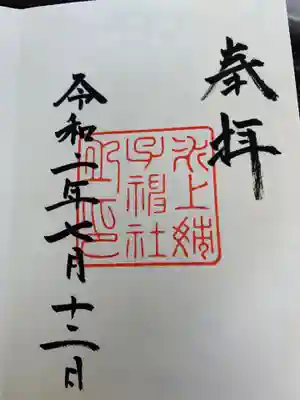 奉拝
氷上姉
子神社
之印
令和二年七月十二日